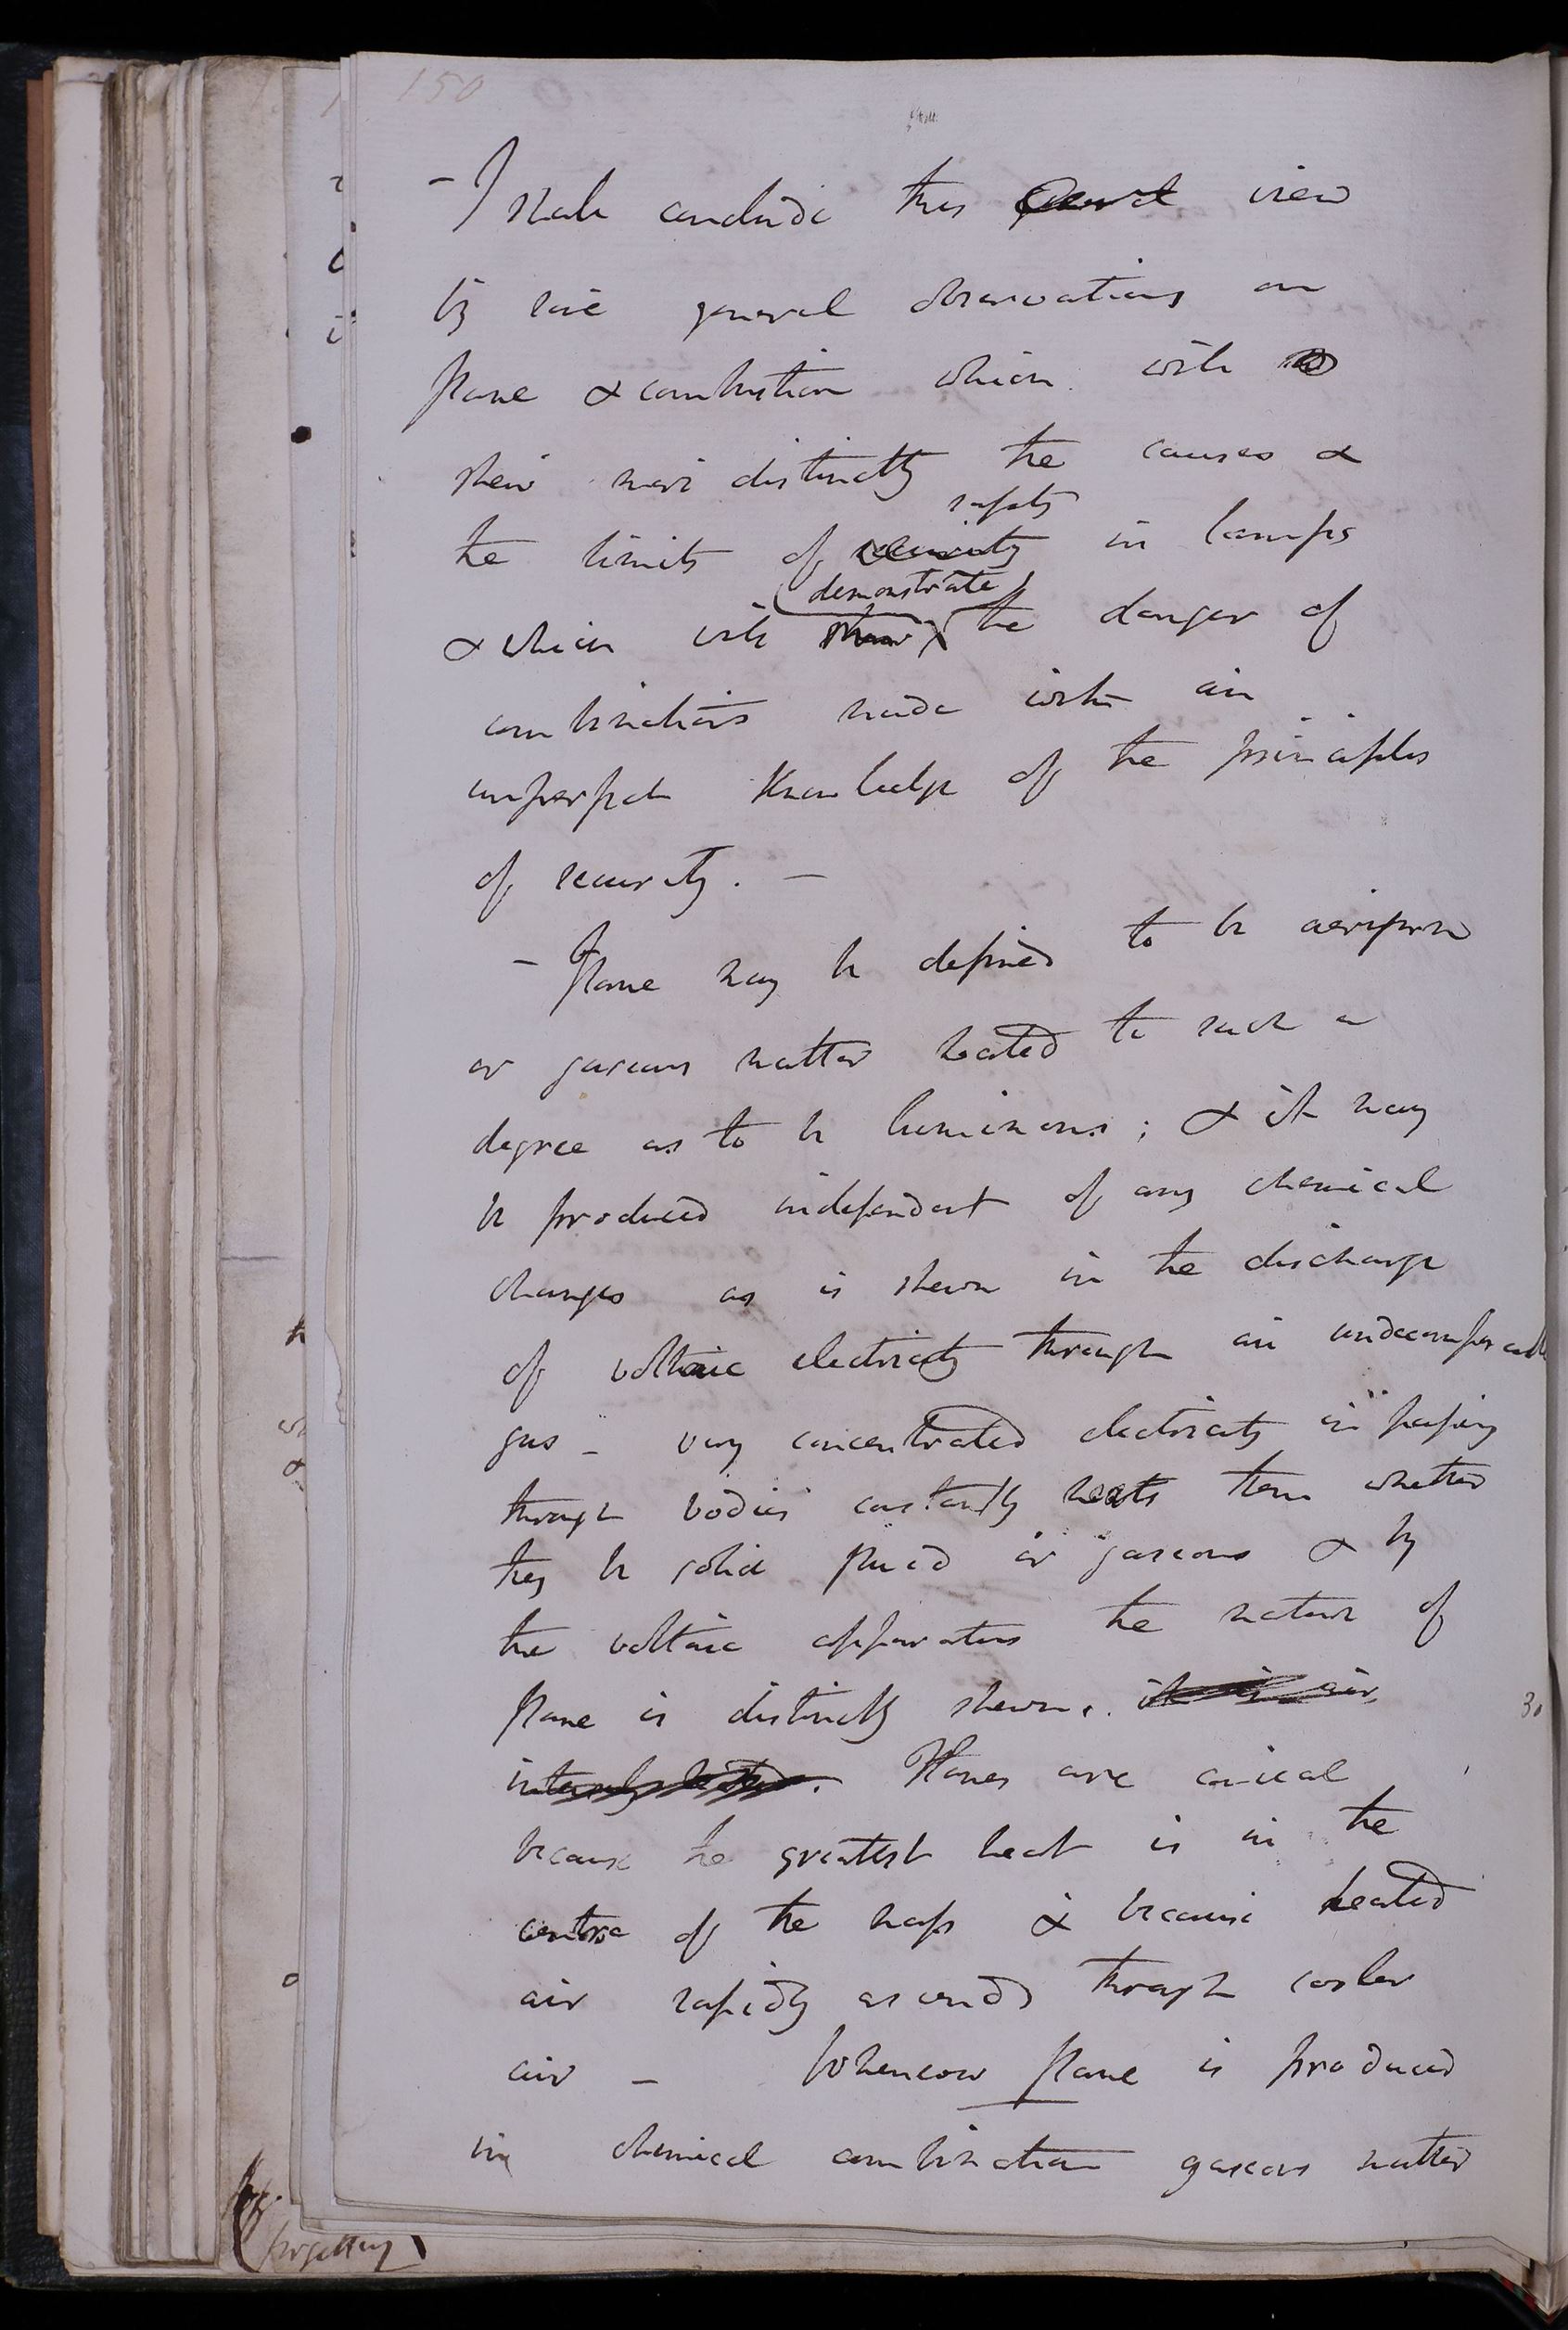 150
- I shall conclude this view
by some general observations on
flame & combustion which will
shew more distinctly the causes &
safety
the limits of security in lamps
demonstrate
& which will shew the danger of
combinations made with an
imperfect knowledge of the principles
of security. -
- Flame may be defined to be aeriform
or gaseous matter heated to such a
degree as to be luminous; & it may
be produced independent of any chemical
changes as is shewn in the discharge
of voltaic electricity through an undecomposable
gas - very concentrated electricity in passing
through bodies constantly heats them whether
they be solid fluid or gaseous & by
the voltaic apparatus the nature of
flame is distinctly shewn. it is air
intensely heated. Flames are conical
because the greatest heat is in the
centre of the mass & because heated
air rapidly ascends through cooler
air - Whenever flame is produced
in chemical combination gaseous matter
forgetting